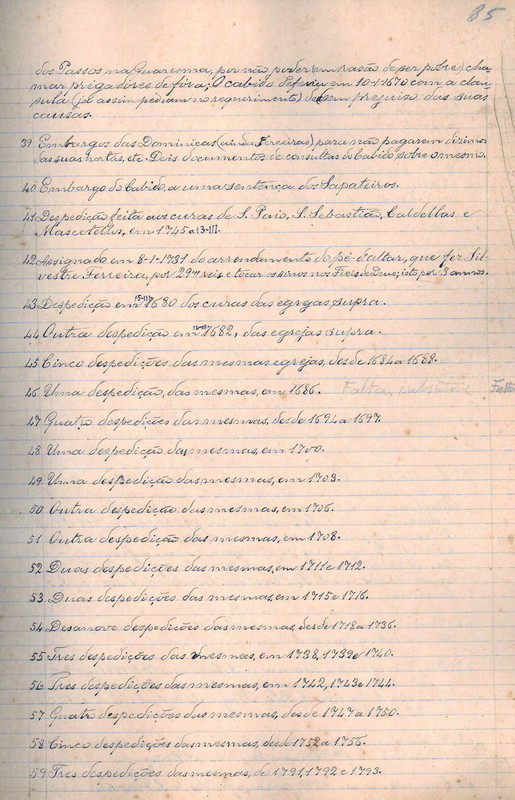 85
dos Passos na Quaresma, por não poder (em rasão de ser pobre) cha-
mar prégadores de fóra; O cabido deferiu em 10-1-1670 com a clau-
sula (já assim pediam no requerimento) de sem prejuiso das suas
causas.
39 Embargos das Dominicas (ainda Terceiras) para não pagarem dizimo
das suas hortas, etc. Dois documentos de consultas do Cabido sobre o mesmo.
40 Embargo do Cabido, a uma sentença dos Sapateiros.
41 Despedição feita aos curas de S. Paio, S. Sebastião, Caldellas e
Mascotellos, em 1745 a 13-III.
42 Assignado em 8-1-1731 do arrendamento do pé d'altar, que fez Sil-
vestre Ferreira, por 29 reis e tocar os sinos nos Fieis de Deus; isto por 3 annos.
43 Despedição em 15-III 1680 dos curas das egrejas supra.
44 Outra despedição em 1682, das egrejas supra.
45 Cinco despedições das mesmas egrejas, desde 1684 a 1688.
46 Uma despedição, das mesmas, em 1686. Faltam
47 Quatro despedições das mesmas, desde 1694 a 1697.
48 Uma despedição das mesmas, em 1700.
49 Uma despedição das mesmas, em 1703.
50 Outra despedição das mesmas, em 1706.
51 Outra despedição das mesmas, em 1708.
52 Duas despedições das mesmas, em 1711 e 1712.
53 Duas despedições das mesmas, em 1715 e 1716.
54 Desanove despedições das mesmas, desde 1718 a 1736.
55 Tres despedições das mesmas, em 1738, 1739 e 1740.
56 Tres despedições das mesmas, em 1742, 1743 e 1744.
57 Quatro despedições das mesmas, desde 1747 a 1750.
58 Cinco despedições das mesmas, desde 1752 a 1756.
59 Tres despedições das mesmas, de 1791, 1792 e 1793.